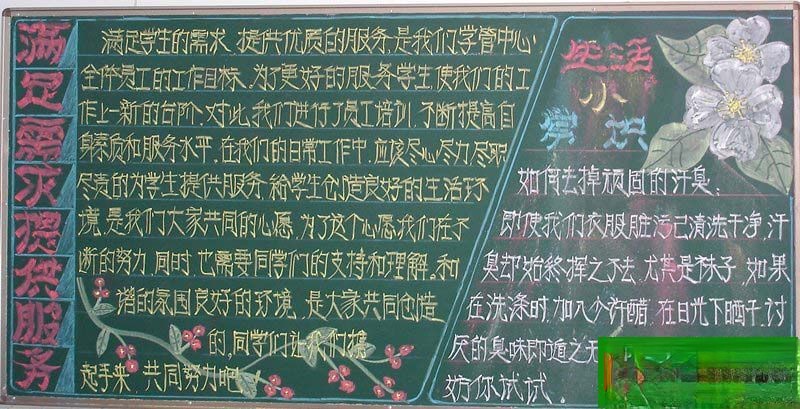 满足需求提供服务
满足学生的需求,提供优质的服务,是我们学管中心
全体员工的工作目标。为了更好的服务学生,使我们的工
作上一新的台阶,对此,我们进行了员工培训,不断提高自
身素质和服务水平,在我们的日常工作中,应该尽心尽力尽职
尽责的为学生提供服务,给学生创造良好的生活环
境,是我们大家共同的心愿,为了这个心愿我们在不
断的努力,同时,也需要同学们的支持和理解。和
谐的氛围良好的环境,是大家共同创造
的,同学们让我们携
起手来,共同努力吧!
生活
小
常识
如何去掉顽固的汗臭:
即使我们衣服脏污已清洗干净,汗
臭却始终挥之不去,尤其是袜子,如果
在洗涤时,加入少许醋,在日光下晒干,讨
厌的臭味即遁之无
妨你试试.